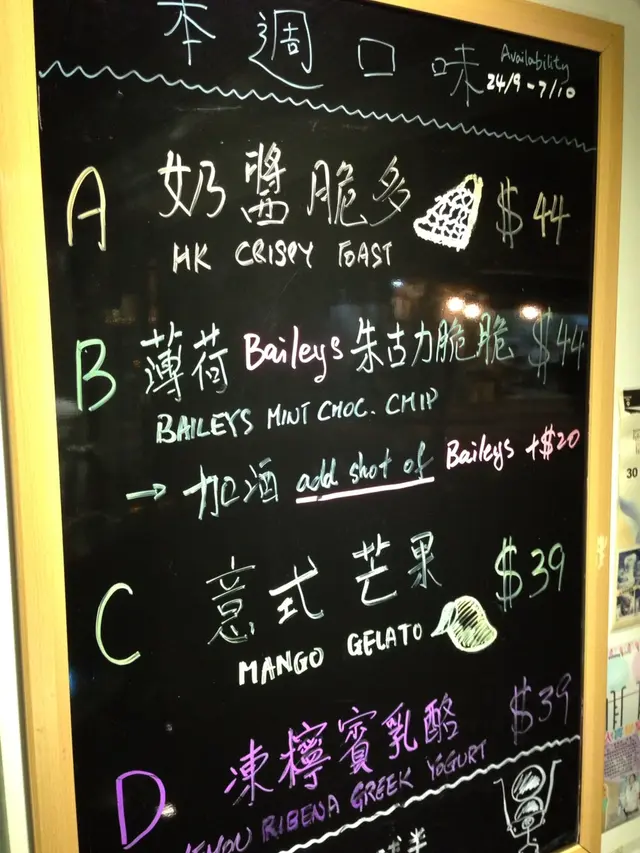 本週口味
Availability
24/9 - 7/10
A 奶醬脆多 $44
HK CRISPY TOAST
B 薄荷 Baileys 朱古力脆脆 $44
BAILEYS MINT CHOC. CHIP
→ 加酒 add shot of Baileys +$20
C 意式芒果 $39
MANGO GELATO
D 凍檸賓乳酪 $39
RIBENA GREEK YOGURT
30